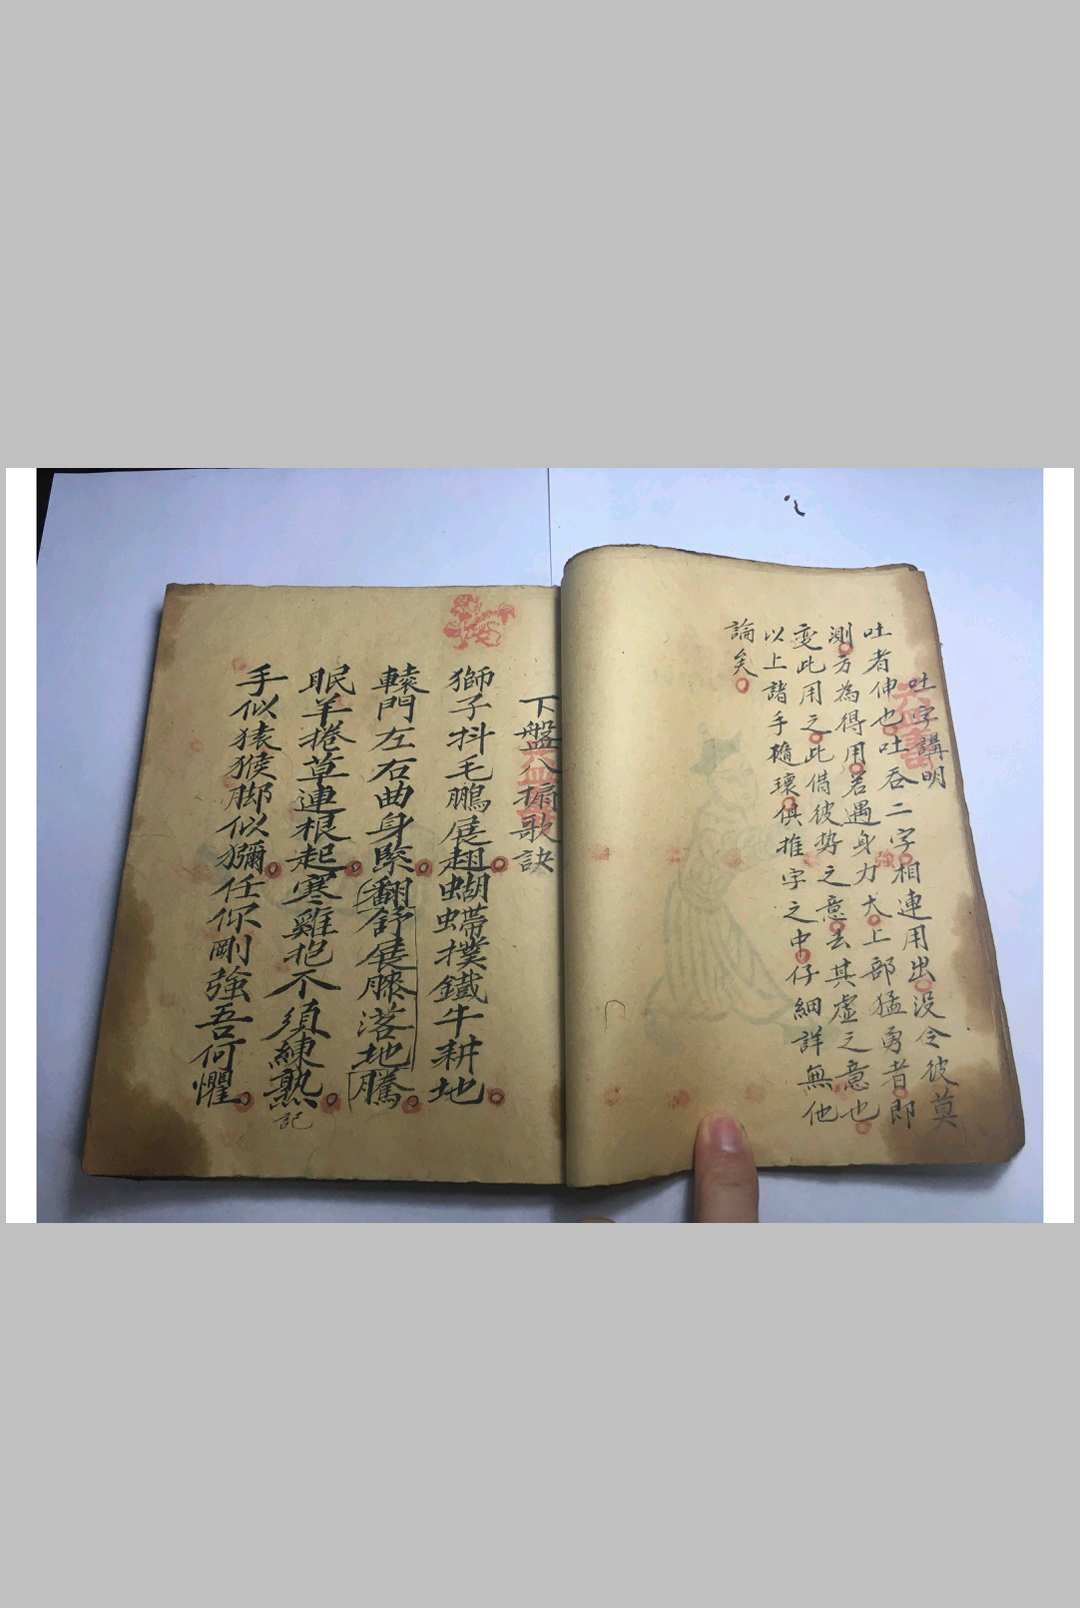 吐字講明
吐者伸也吐吞二字相連用出没令彼莫
測方為得用若遇身力大上部猛勇者即
变此用之此借彼势之意去其虛之意也
以上諸手隨環俱推字之中仔細詳無他
論矣
強
下盤八掮歌訣
獅子抖毛鵬展翅蝴蝶撲鐵牛耕地
轅門左右曲身緊翻舒展膝落地騰
眠羊捲草連根起寒雞抱不須練熟
記
手似猿猴脚似獼任你剛強吾何懼